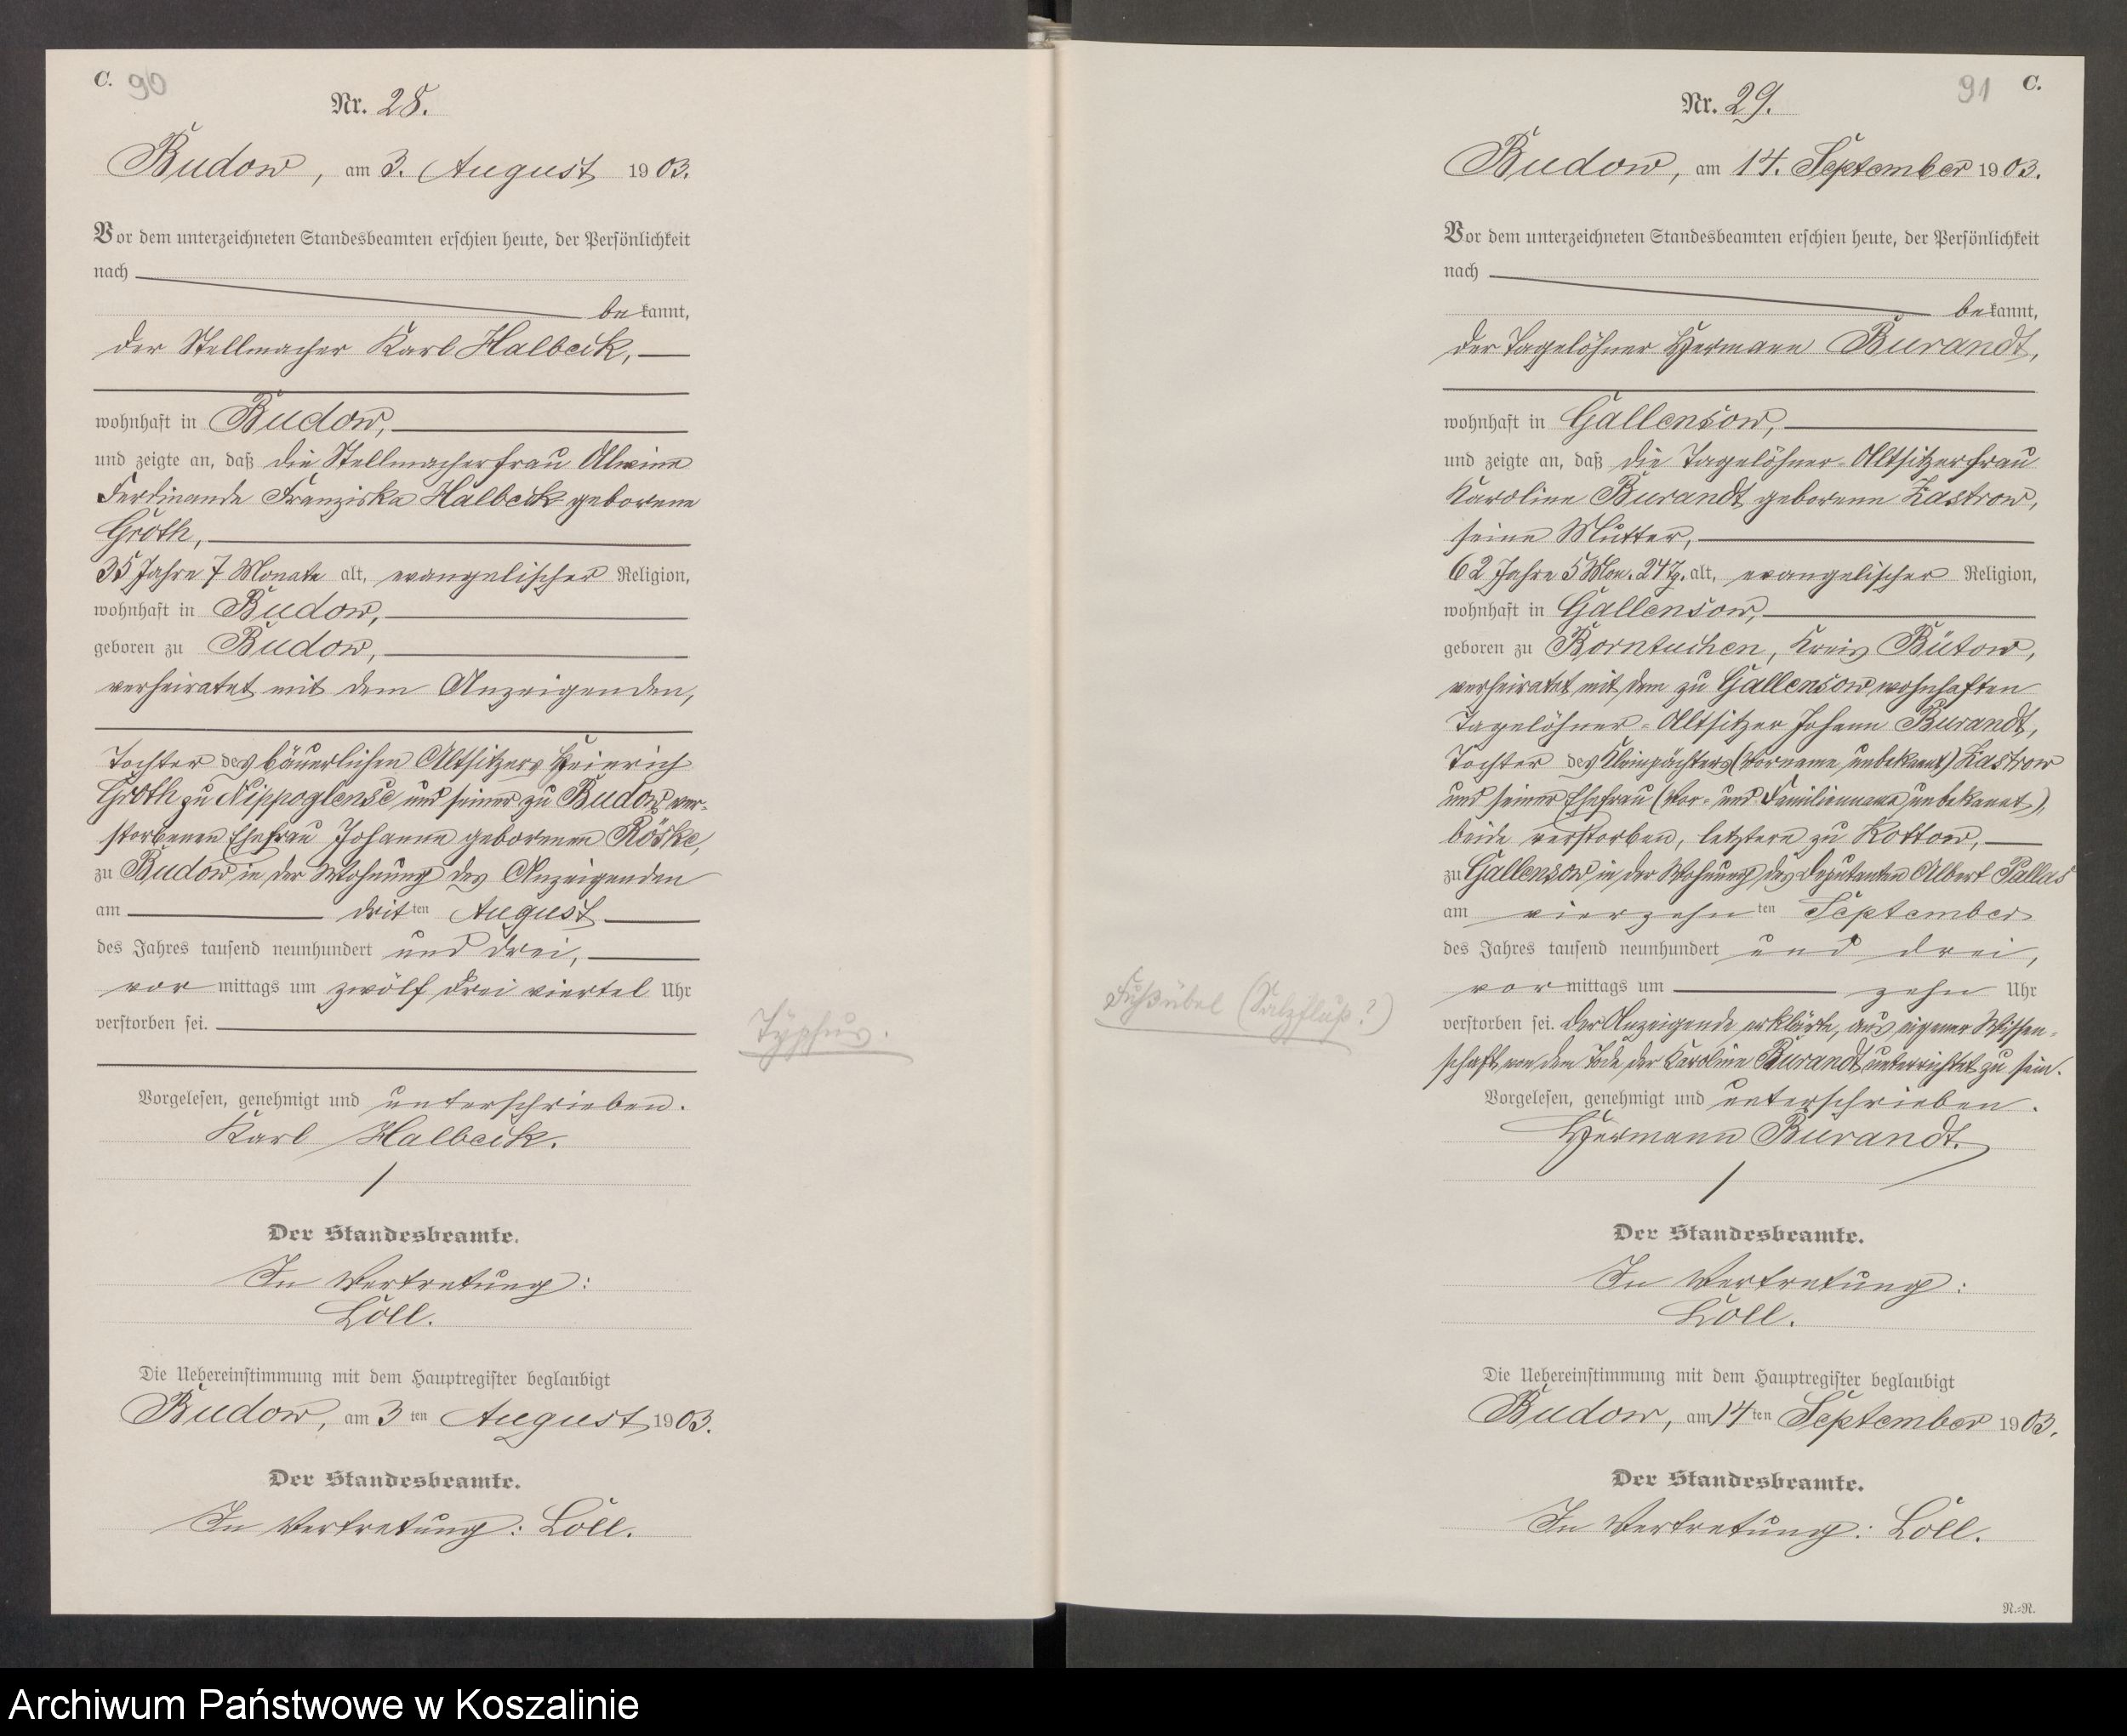 C. 90
Nr. 28.
Budow, am 3. August 1903.
Vor dem unterzeichneten Standesbeamten erschien heute, der Persönlichkeit
nach
bekannt,
der Stellmacher Karl Halbeck,
wohnhaft in Budow,
und zeigte an, daß die Stellmacherfrau Alwine
Ferdinande Franziska Halbeck geborene
Groth,
35 Jahre 7 Monate alt, evangelischer Religion,
wohnhaft in Budow,
geboren zu Budow,
verheiratet mit dem Anzeigenden,
Tochter des bäuerlichen Altsitzers Heinrich
Groth zu Nippoglense und seiner zu Budow ver-
storbenen Ehefrau Johanne geborenen Röske,
zu Budow in der Wohnung des Anzeigenden
am dritten August
des Jahres tausend neunhundert und drei,
vormittags um zwölf drei viertel Uhr
verstorben sei.
Typhus.
Vorgelesen, genehmigt und unterschrieben.
Karl Halbeck.
Der Standesbeamte.
In Vertretung:
Löll.
Die Uebereinstimmung mit dem Hauptregister beglaubigt
Budow, am 3ten August 1903.
Der Standesbeamte.
In Vertretung: Löll.
91 C.
Nr. 29.
Budow, am 14. September 1903.
Vor dem unterzeichneten Standesbeamten erschien heute, der Persönlichkeit
nach
bekannt,
der Tagelöhner Hermann Burandt,
wohnhaft in Gallensow,
und zeigte an, daß die Tagelöhner-Altsitzerfrau
Karoline Burandt geborene Zastrow,
seine Mutter,
62 Jahre 5 Mon. 24 Tg. alt, evangelischer Religion,
wohnhaft in Gallensow,
geboren zu Borntuchen, Kreis Bütow,
verheiratet mit dem zu Gallensow wohnhaften
Tagelöhner-Altsitzer Johann Burandt,
Tochter des Kleinpächters (Vorname unbekannt) Zastrow
und seiner Ehefrau (Vor- und Familienname unbekannt),
beide verstorben, letztere zu Kottow,
zu Gallensow in der Wohnung des Deputanten Albert Pallas
am vierzehnten September
des Jahres tausend neunhundert und drei,
vormittags um zehn Uhr
verstorben sei. Der Anzeigende erklärte, aus eigener Wissen-
schaft von dem Tode der Karoline Burandt unterrichtet zu sein.
Fußübel (Salzfluß?)
Vorgelesen, genehmigt und unterschrieben.
Hermann Burandt.
Der Standesbeamte.
In Vertretung:
Löll.
Die Uebereinstimmung mit dem Hauptregister beglaubigt
Budow, am 14ten September 1903.
Der Standesbeamte.
In Vertretung: Löll.
N.-N.
Archiwum Państwowe w Koszalinie